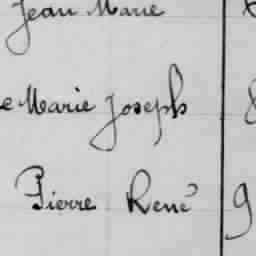 Jean Marie
e Marie Joseph
Pierre René 9